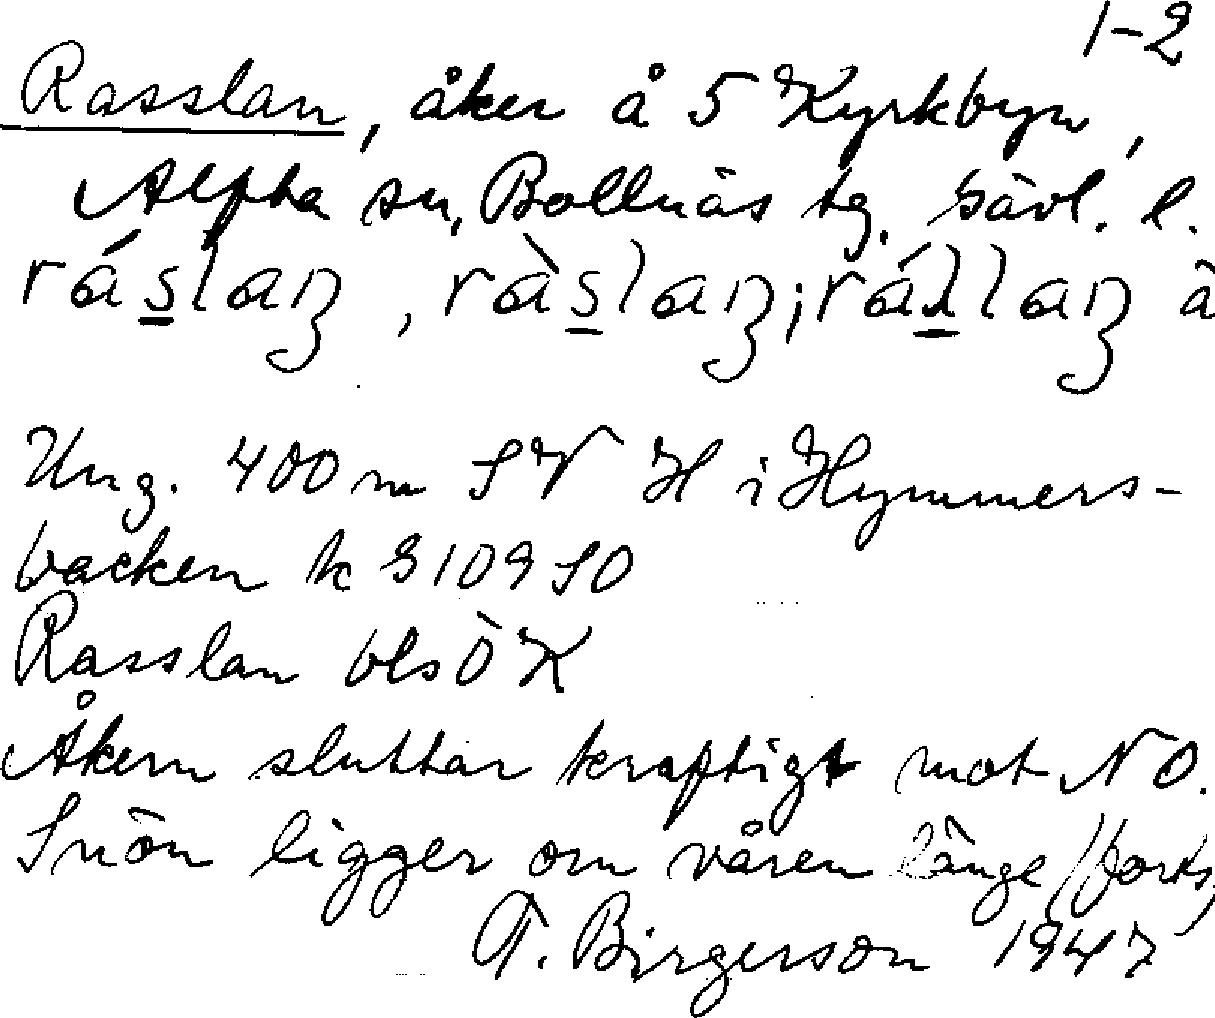 1-2
Rasslan, åker å 5 Kyrkbyn,
Alfta sn, Bollnäs tg. Gävl. l.
ráslaŋ, ràslaŋ; ráʟlaŋ ä
Ung. 400 m SV H i Hymmers-
backen k S 109 SO
Rasslan bls Ö K
Åkern sluttar kraftigt mot NO.
Snön ligger om våren länge (forts)
T. Birgerson 1947